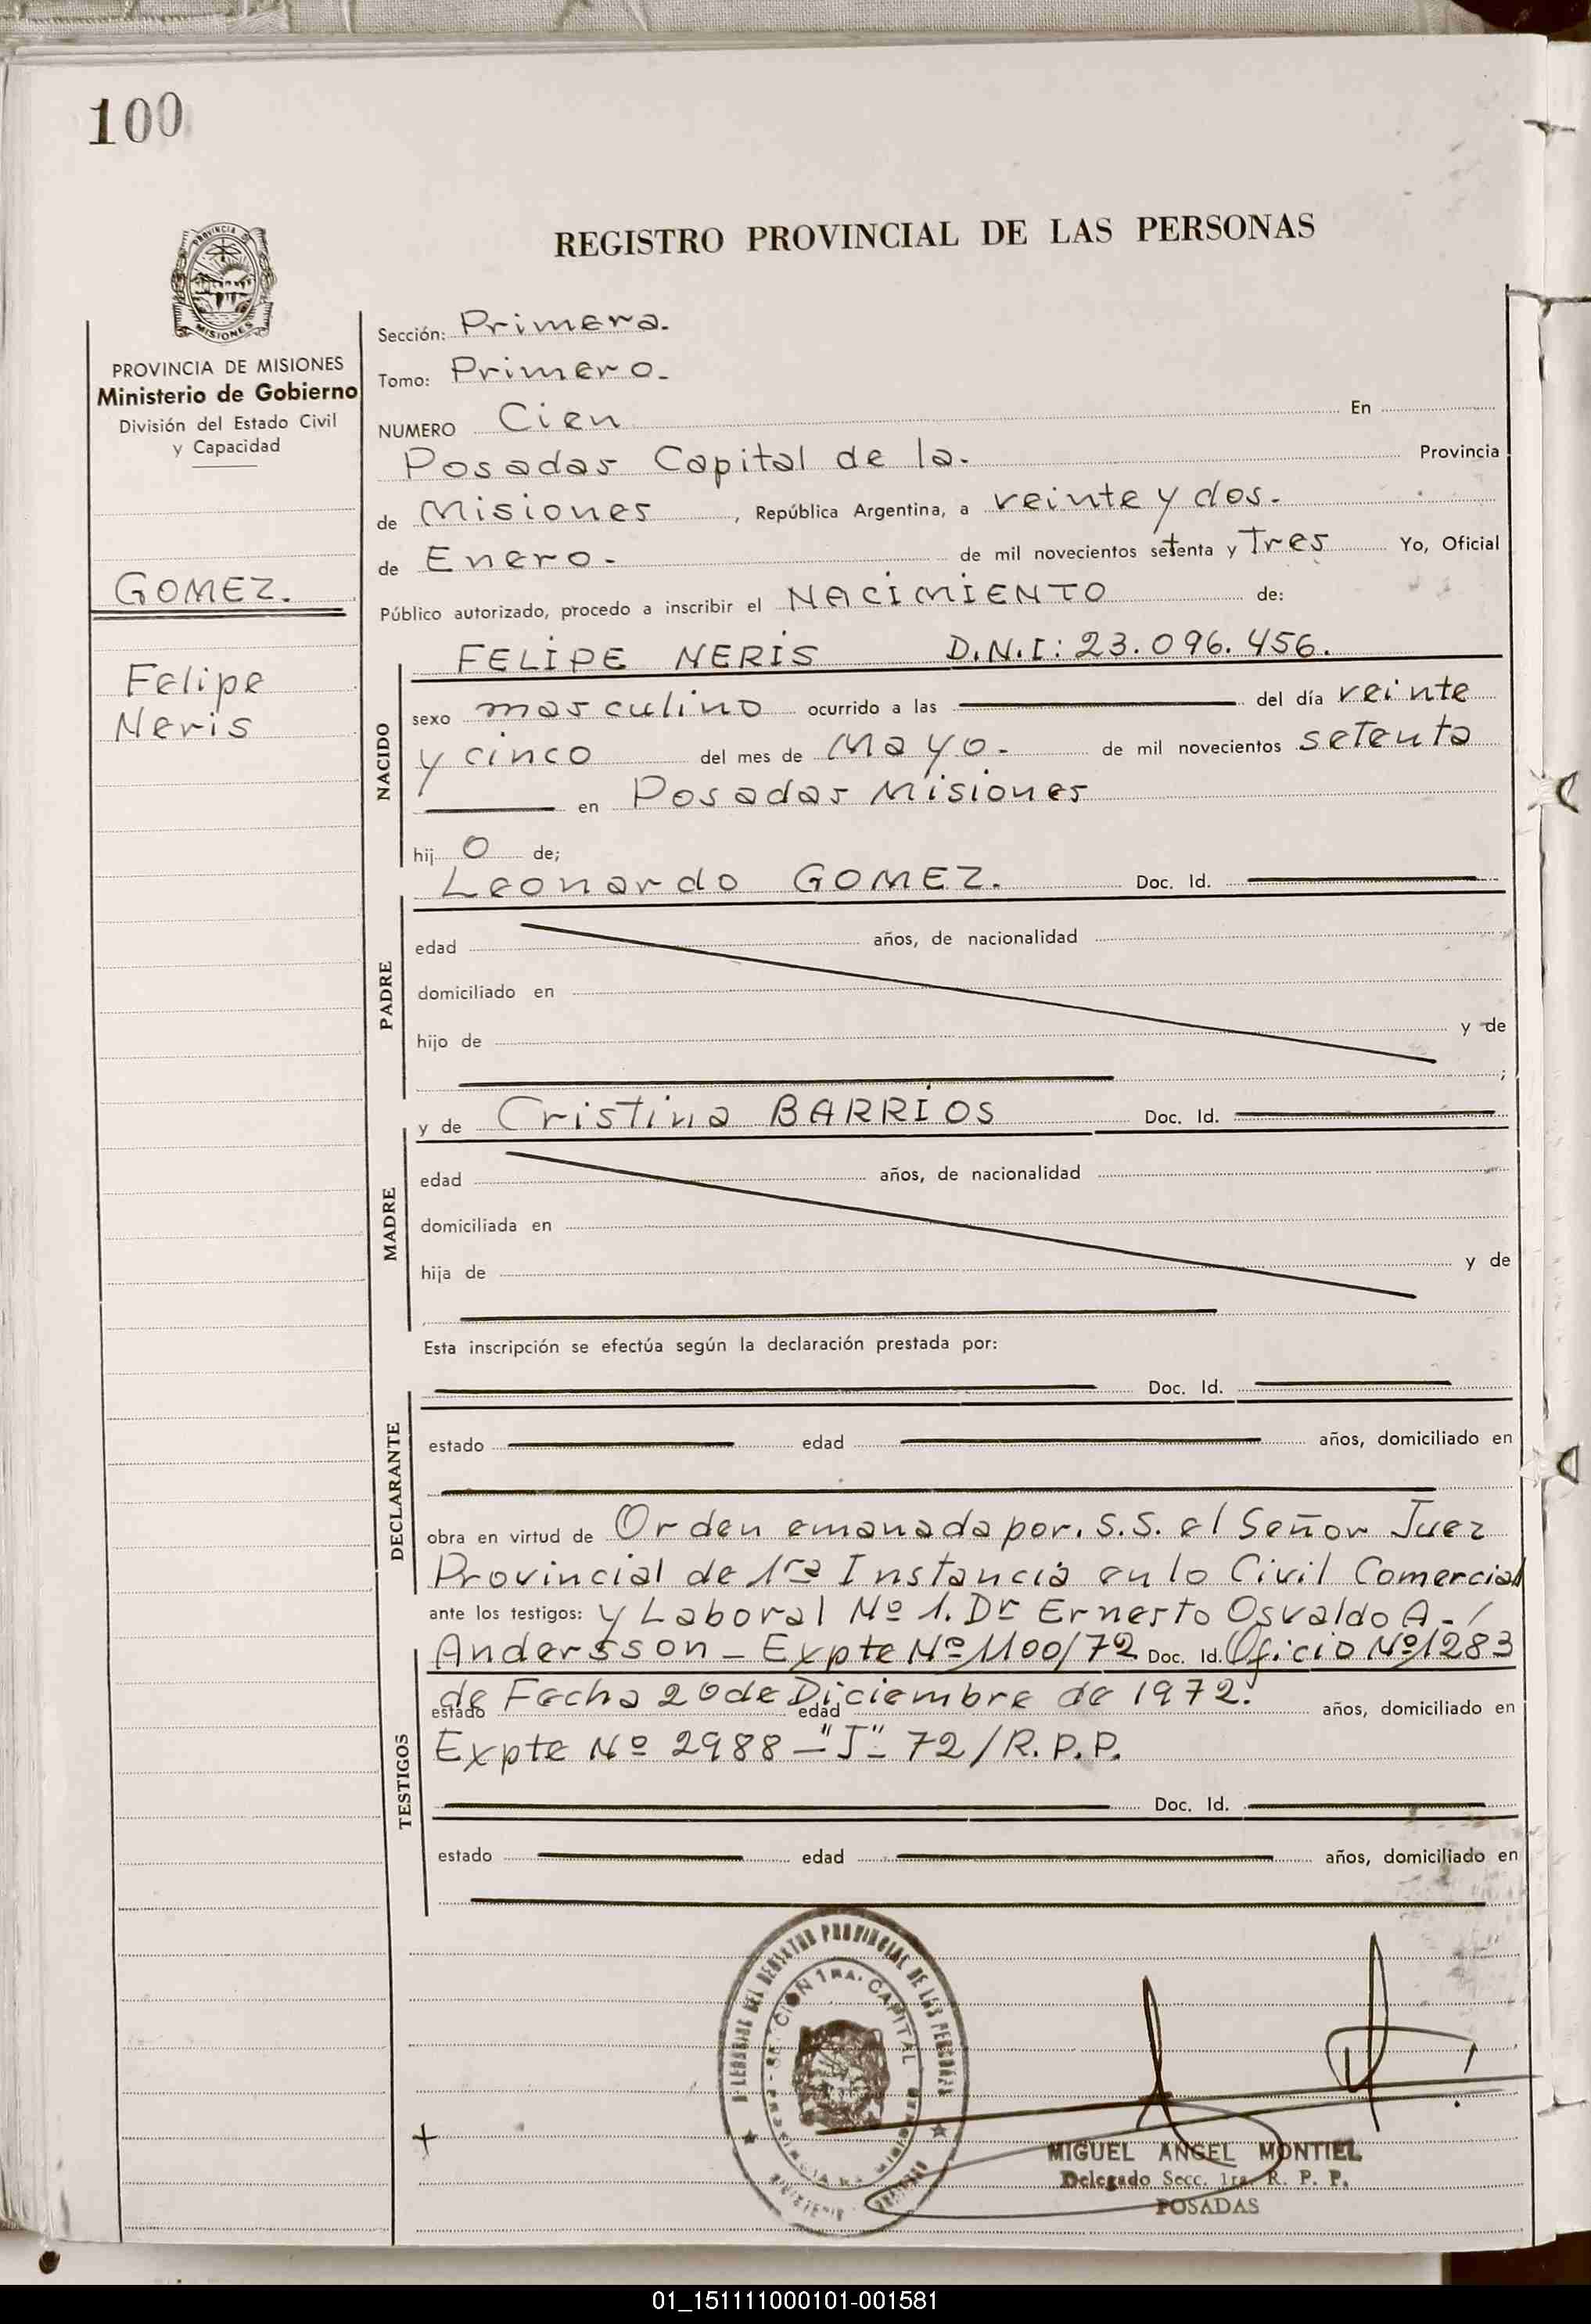 100
REGISTRO PROVINCIAL DE LAS PERSONAS
PROVINCIA DE
MISIONES
PROVINCIA DE MISIONES
Ministerio de Gobierno
División del Estado Civil
y Capacidad
GOMEZ.
Felipe
Neris
Sección: Primera.
Tomo: Primero.
NUMERO Cien En
Posadas Capital de la. Provincia
de Misiones, República Argentina, a veinte y dos.
de Enero. de mil novecientos setenta y Tres Yo, Oficial
Público autorizado, procedo a inscribir el NACIMIENTO de:
NACIDO
FELIPE NERIS D.N.I: 23.096.456.
sexo masculino ocurrido a las del día veinte
y cinco del mes de Mayo. de mil novecientos setenta
en Posadas Misiones
hijo de;
PADRE
Leonardo GOMEZ. Doc. Id.
edad años, de nacionalidad
domiciliado en
hijo de y de
;
MADRE
y de Cristina BARRIOS Doc. Id.
edad años, de nacionalidad
domiciliada en
hija de y de
Esta inscripción se efectúa según la declaración prestada por:
DECLARANTE
Doc. Id.
estado edad años, domiciliado en
obra en virtud de Orden emanada por. S.S. el Señor Juez
Provincial de 1ra Instancia en lo Civil Comercial
ante los testigos: y Laboral Nº 1. Dr Ernesto Osvaldo A-/
TESTIGOS
Andersson - Expte Nº 1100/72 Doc. Id. Oficio Nº 1283
estado de Fecha 20 de Diciembre de 1972. edad años, domiciliado en
Expte Nº 2988-"J"-72/R.P.P.
Doc. Id.
estado edad años, domiciliado en
REGISTRO PROVINCIAL DE LAS PERSONAS
SECCION 1RA. CAPITAL
MIGUEL ANGEL MONTIEL
Delegado Secc. 1ra. R. P. P.
POSADAS
01_151111000101-001581